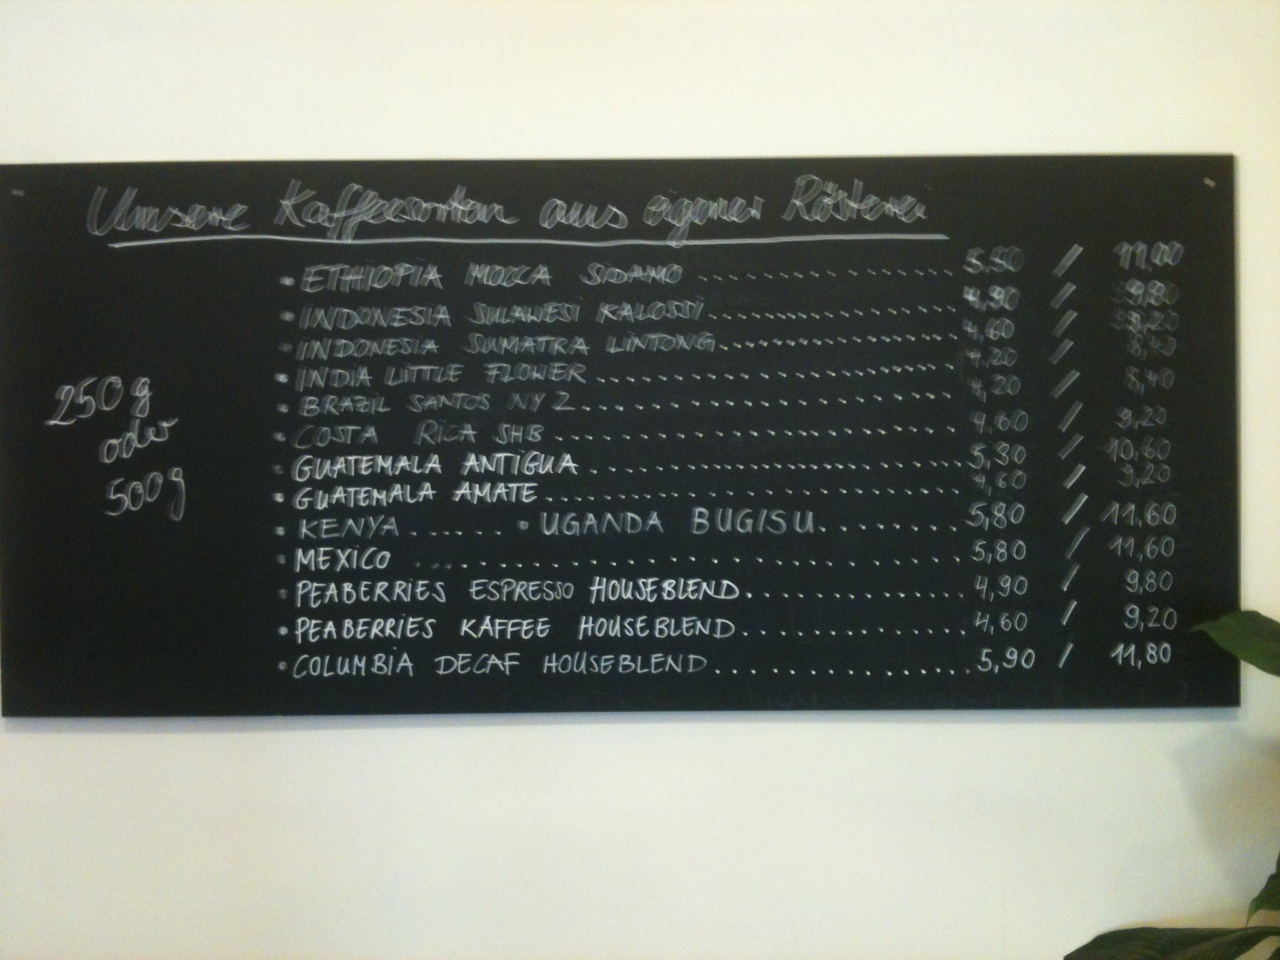 Unsere Kaffeesorten aus eigener Rösterei
250 g
oder
500 g
• ETHIOPIA MOCCA SIDAMO ........ 5,50 / 11,00
• INDONESIA SULAWESI KALOSSI ........ 4,90 / 9,80
• INDONESIA SUMATRA LINTONG ........ 4,60 / 9,20
• INDIA LITTLE FLOWER ........ 4,20 / 8,40
• BRAZIL SANTOS NY 2 ........ 4,20 / 8,40
• COSTA RICA SHB ........ 4,60 / 9,20
• GUATEMALA ANTIGUA ........ 5,30 / 10,60
• GUATEMALA AMATE ........ 4,60 / 9,20
• KENYA ...... • UGANDA BUGISU ........ 5,80 / 11,60
• MEXICO ........ 5,80 / 11,60
• PEABERRIES ESPRESSO HOUSEBLEND ........ 4,90 / 9,80
• PEABERRIES KAFFEE HOUSEBLEND ........ 4,60 / 9,20
• COLUMBIA DECAF HOUSEBLEND ........ 5,90 / 11,80